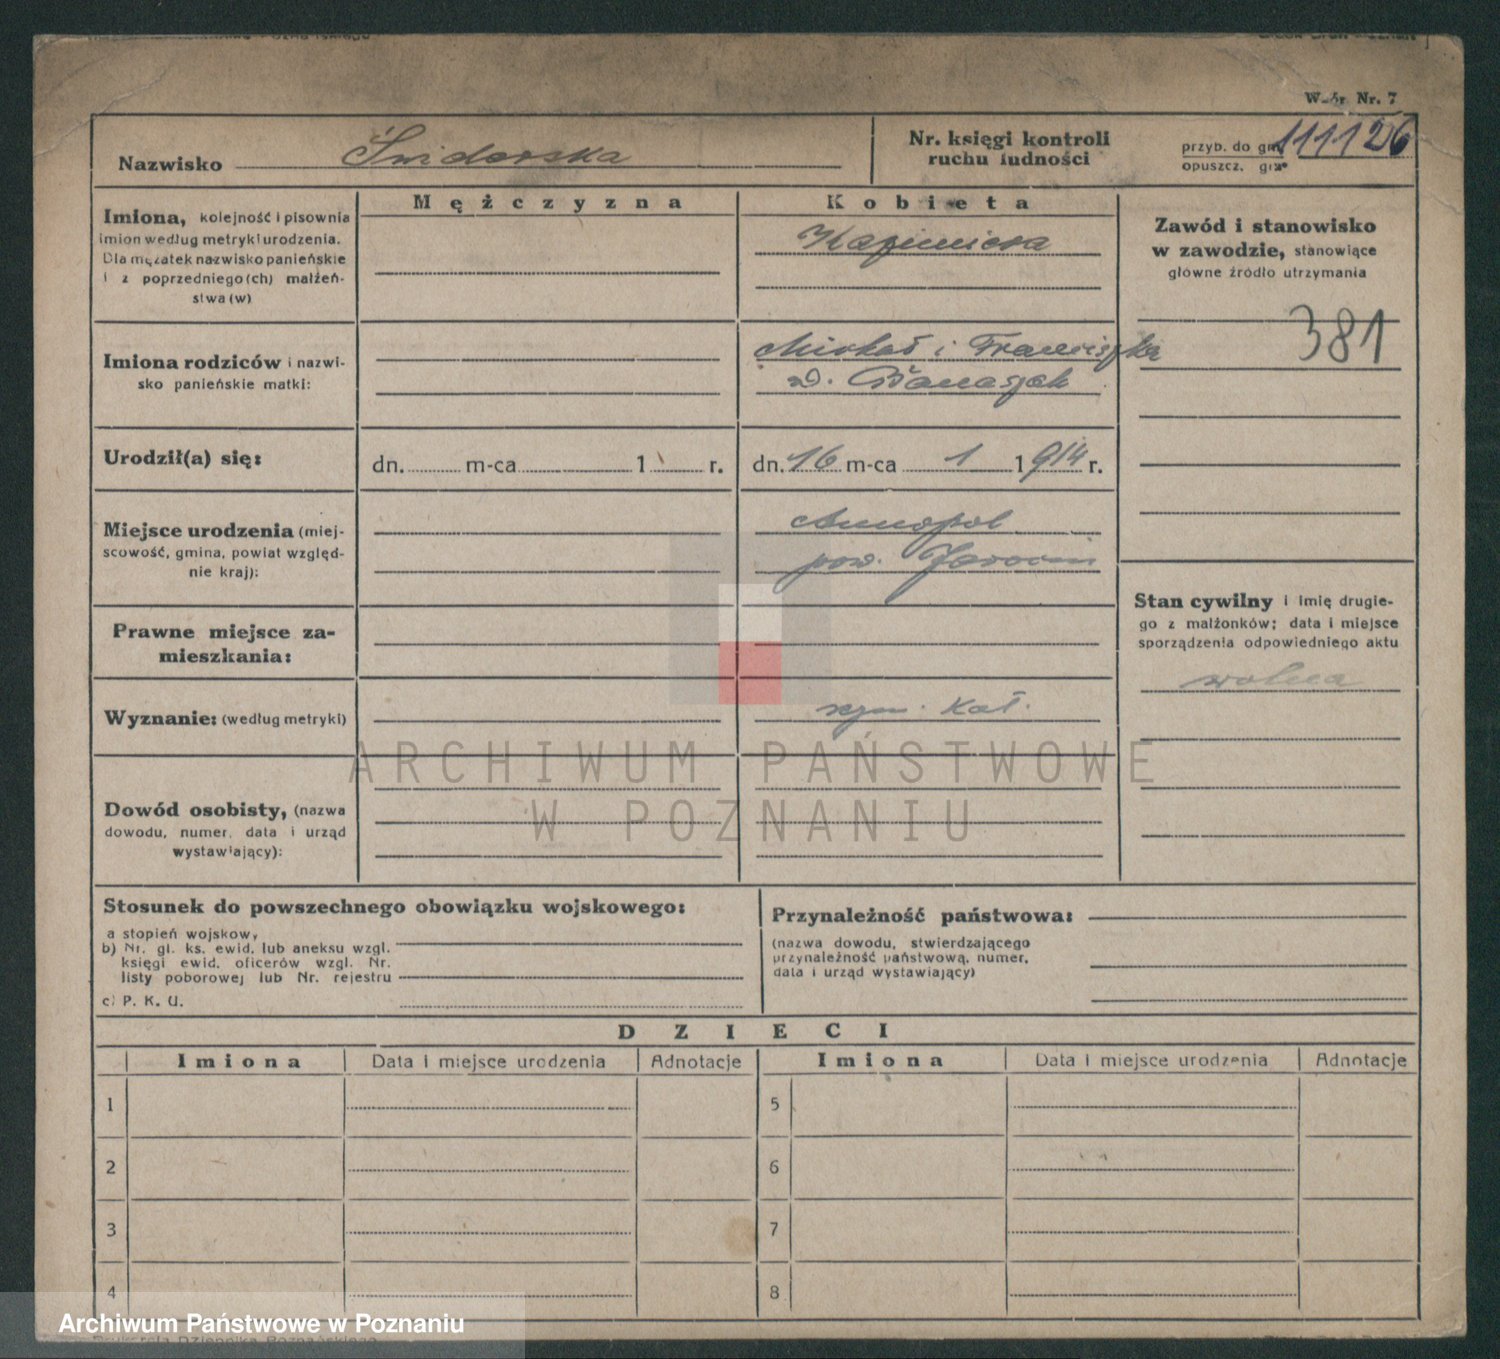 Wzór Nr. 7
Nazwisko Śniderska
Nr. księgi kontroli
ruchu ludności
przyb. do gm. 111126
opuszcz. gm.
Mężczyzna
Kobieta
Imiona, kolejność i pisownia
imion według metryki urodzenia.
Dla mężatek nazwisko panieńskie
i z poprzedniego(ch) małżeń-
stwa(w)
Kazimiera
Zawód i stanowisko
w zawodzie, stanowiące
główne źródło utrzymania
381
Imiona rodziców i nazwi-
sko panieńskie matki:
Michał i Franciszka
d. Banaszak
Urodził(a) się:
dn. m-ca 1 r.
dn. 16 m-ca 1 1914 r.
Miejsce urodzenia (miej-
scowość, gmina, powiat względ-
nie kraj):
Annopol
pow. Jarocin
Stan cywilny i imię drugie-
go z małżonków; data i miejsce
sporządzenia odpowiedniego aktu
wolna
Prawne miejsce za-
mieszkania:
Wyznanie: (według metryki)
rzym. kat.
ARCHIWUM PAŃSTWOWE
W POZNANIU
Dowód osobisty, (nazwa
dowodu, numer, data i urząd
wystawiający):
Stosunek do powszechnego obowiązku wojskowego:
a stopień wojskow,
b) Nr. gl. ks. ewid. lub aneksu wzgl.
księgi ewid. oficerów wzgl. Nr.
listy poborowej lub Nr. rejestru
c) P. K. U.
Przynależność państwowa:
(nazwa dowodu, stwierdzającego
przynależność państwową, numer,
data i urząd wystawiający)
DZIECI
Imiona Data i miejsce urodzenia Adnotacje Imiona Data i miejsce urodzenia Adnotacje
1 5
2 6
3 7
4 8
Archiwum Państwowe w Poznaniu
Drukarnia Dziennika Poznańskiego